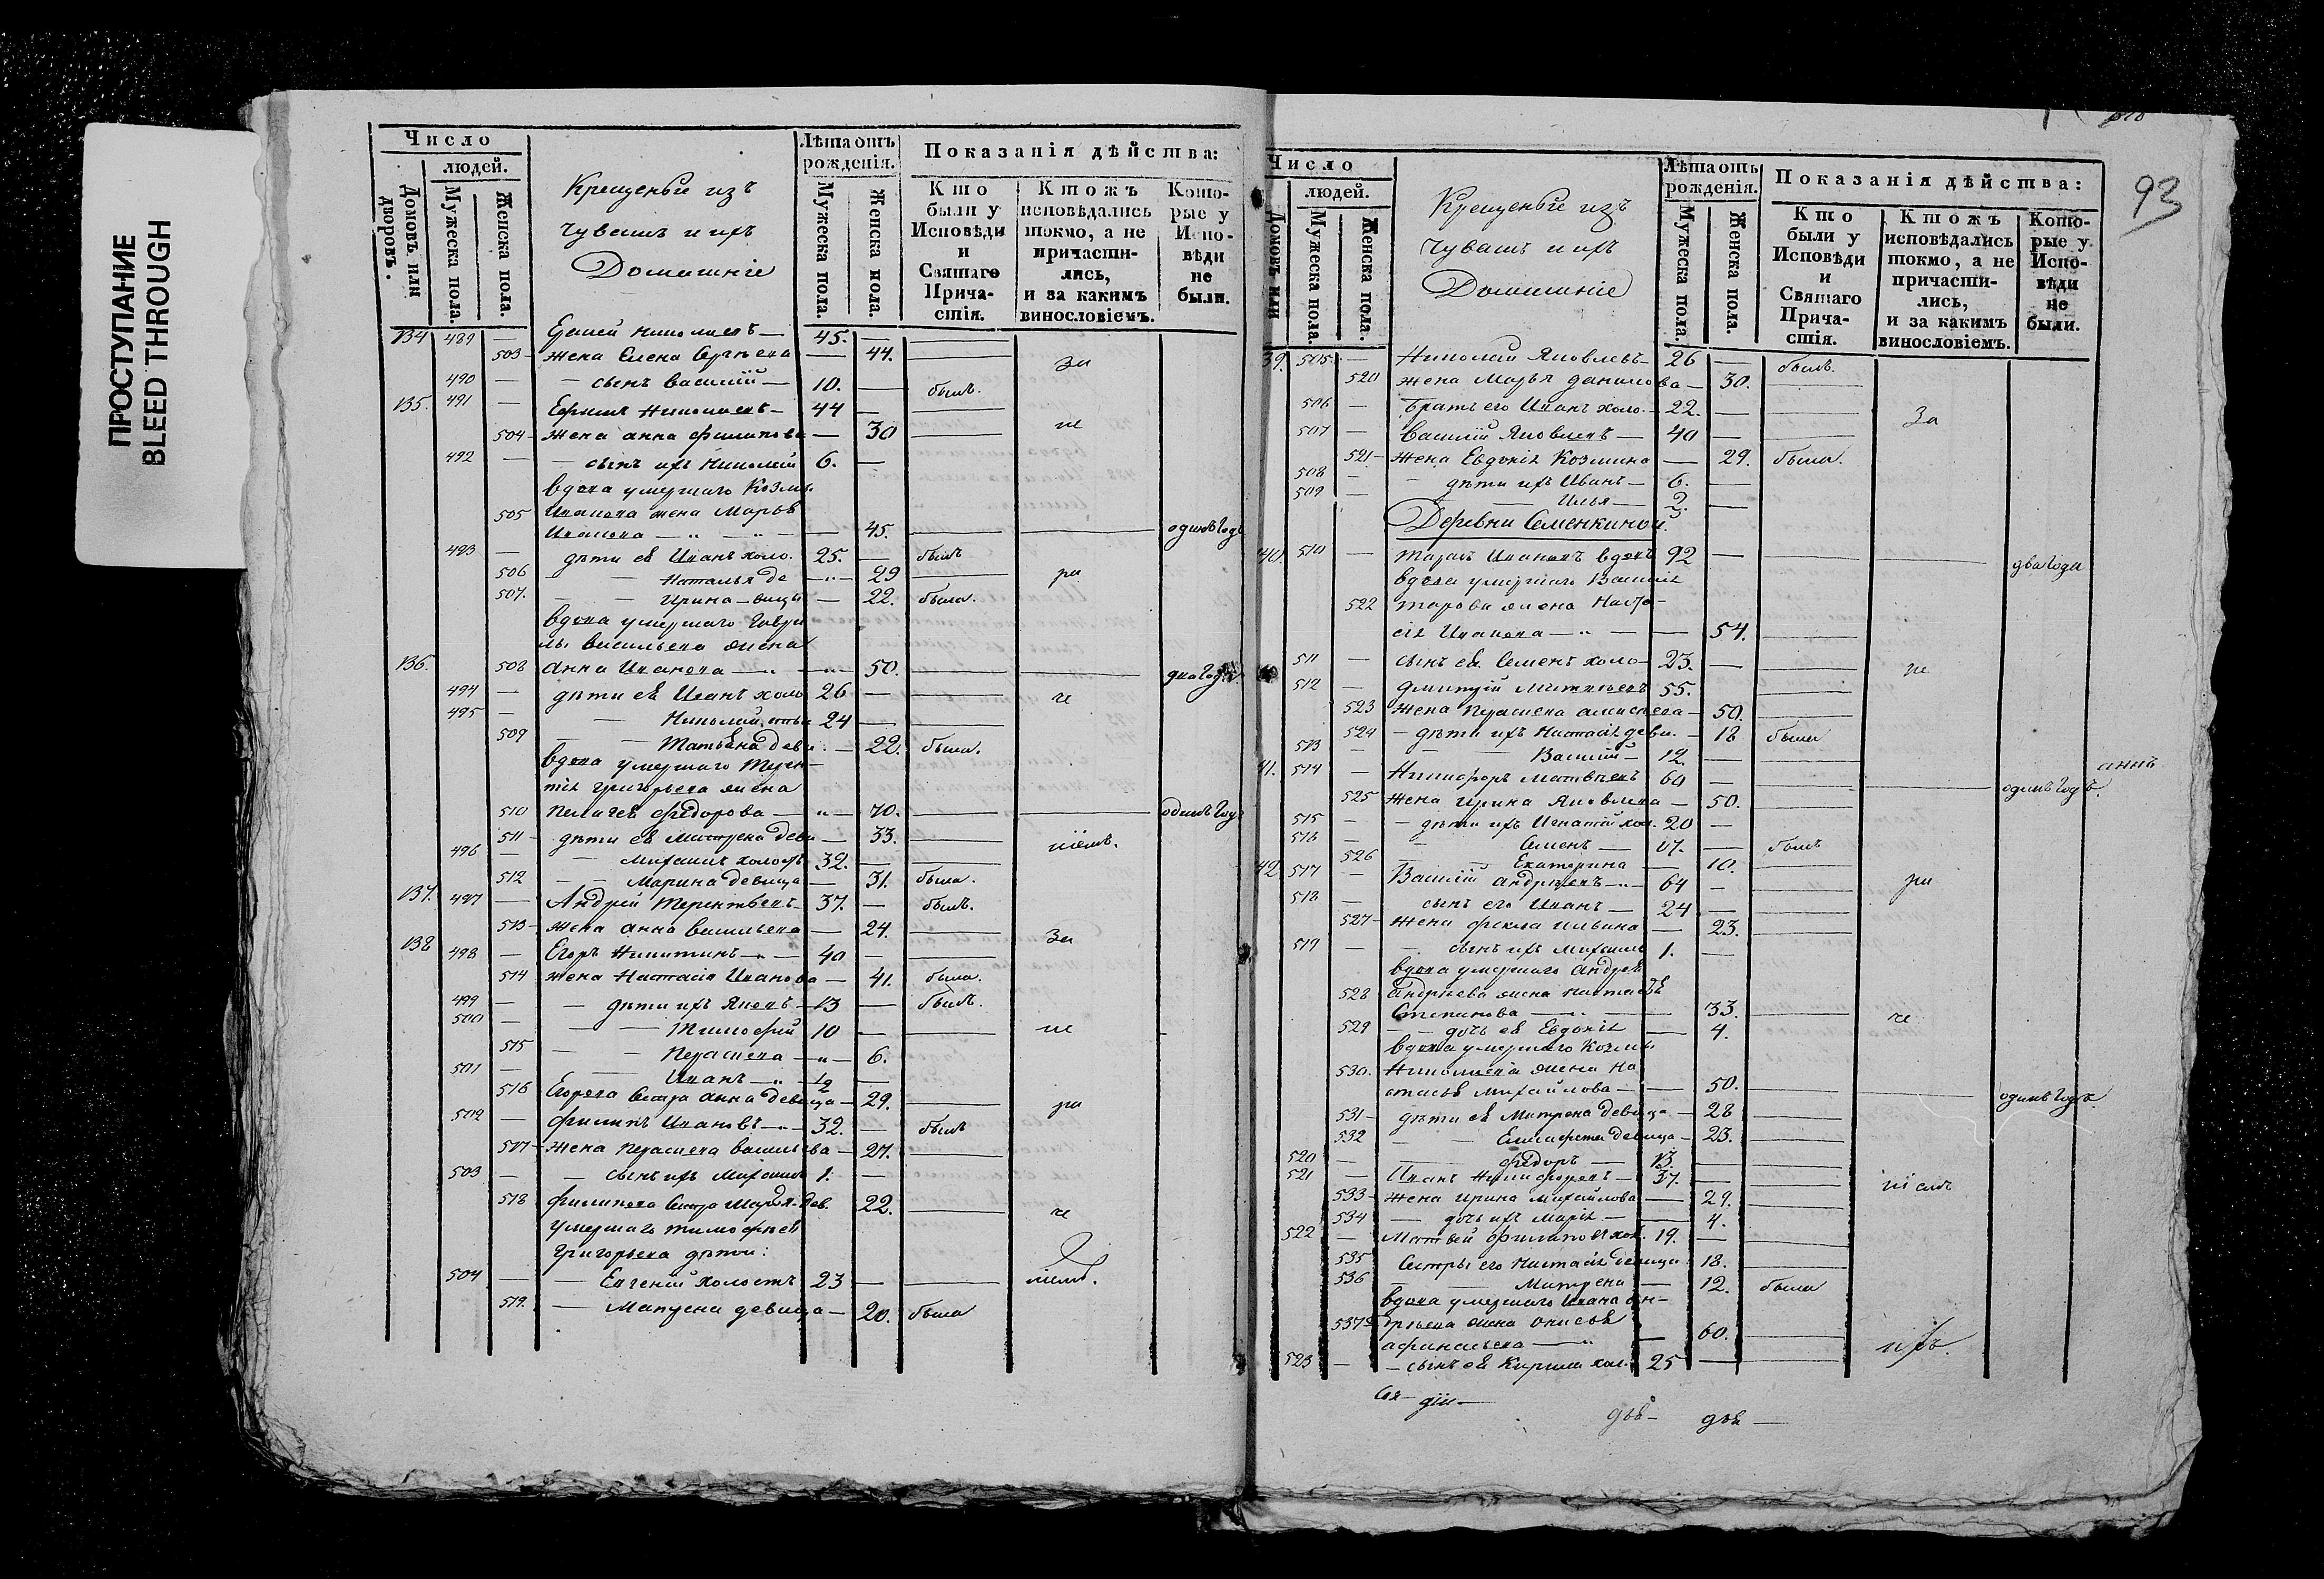 ПРОСТУПАНИЕ
BLEED THROUGH
Число
людей.
Домовъ или дворовъ.
Мужеска пола.
Женска пола.
Крещеные изъ
чувашъ и ихъ
Домашніе
Лѣта отъ рожденія.
Мужеска пола.
Женска пола.
Показанія дѣйства:
Кто были у Исповѣди и Святаго Причастія.
Ктожъ исповѣдались токмо, а не причастились, и за какимъ винословіемъ.
Которые у Исповѣди не были.
134 489 — Николаевъ — 45. —
503 — жена Елена Сергѣева — 44. — за
490 — — сынъ Василій — 10. — былъ.
135. 491 — Ефимъ Николаевъ — 44 —
504 — жена Анна Филипова — 30 — не
492 — — сынъ ихъ Николай 6. —
вдова умершаго Козмы
505 Иванова жена Марья
Иванова — 45. — одинъ годъ
493 — дѣти ея Иванъ холо. 25. — былъ
506 — — Наталья де — 29 — ра
507. — — Ирина — вицы — 22. была.
вдова умершаго Гаври
лы Васильева жена
136. 508 Анна Иванова — 50. — два года
494 — дѣти ея Иванъ холо 26 — че
495 — — Николай 24 —
509 — — Татьяна деви. — 22. была.
вдова умершаго Терен-
тія Григорьева жена
510 Пелагея Федорова — 70. — одинъ годъ
511 — дѣти ея Матрена деви — 33. — ніемъ.
496 — — Михаилъ холостъ 32. —
512 — — Марина девица — 31. была.
137. 497 — Андрей Терентьевъ — 37. — былъ.
513 — жена Анна Васильева — 24. — За
138 498 — Егоръ Никитинъ — 40 —
514 жена Настасія Иванова — 41. была.
499 — — дѣти ихъ Яковъ — 13 — былъ.
500 — — Тимофей 10 — не
515 — — Параскева — 6.
501 — — Иванъ — 1/2 —
516 Егорова сестра Анна девица — 29. — ра
502 — Филипъ Ивановъ — 32. — былъ
517 — жена Параскева Васильева — 27. —
503 — — сынъ ихъ Михаилъ 1. —
518 Филипова сестра Марья дев. 22. — че
умершаго Тимофея
Григорьева дѣти:
504 — — Евгеній холостъ 23 — ніемъ.
519. — Матрена девица — 20. была
93
Число
людей.
Домовъ или
Мужеска пола.
Женска пола.
Крещеные изъ
чувашъ и ихъ
Домашніе
Лѣта отъ рожденія.
Мужеска пола.
Женска пола.
Показанія дѣйства:
Кто были у Исповѣди и Святаго Причастія.
Ктожъ исповѣдались токмо, а не причастились, и за какимъ винословіемъ.
Которые у Исповѣди не были.
39. 505 — Николай Яковлевъ — 26 — былъ.
520 жена Марья Данилова — 30. —
506 — Братъ его Иванъ холо. — 22. — За
507 — Василій Яковлевъ — 40 —
521 — жена Евдокія Козмина — 29. была.
508 — — дѣти ихъ Иванъ — 6. —
509 — — Илья — 2. —
Деревни Семенкиной.
40. 510 — Тарасъ Ивановъ вдовъ 92 — два года
вдова умершаго Василія
522 Тарова жена Наста-
сія Иванова — 54. —
511 — сынъ ея Семенъ холо — 23. — не
512 — Дмитрій Матвѣевъ 55. —
523 жена Параскева Алексѣева — 50. —
524 — дѣти ихъ Настасія деви. — 18 была
513 — — Василій — 12. —
41. 514 — Никифоръ Матвѣевъ 60 — одинъ годъ.
525 жена Ирина Яковлева — 50.
515 — — дѣти ихъ Игнатій хол. 20 —
516 — — Семенъ — 17. — былъ
526 — — Екатерина — 10. —
42 517 — Василій Андрѣевъ — 64 — ра
518 — сынъ его Иванъ — 24 —
527 — жена Фекла Ильина — 23. —
519 — — сынъ ихъ Михаилъ 1. —
вдова умершаго Андрея
528 Андрѣева жена Настасья
Степанова — 33. — че
529 — — дочь ея Евдокія — 4.
вдова умершаго Козмы
530. Николаева жена На
стасья Михайлова — 50. — одинъ годъ.
531 — дѣти ея Матрена девица — 28 —
532 — — Елисавета девица — 23. —
520 — — Федоръ — 13. —
521 — Иванъ Никифоровъ — 37. — ніемъ
533 — жена Ирина Михайлова — 29. —
534 — дочь ихъ Марія — 4.
522 — Матвей Филиповъ хол. 19. —
535 Сестры его Настасія девица 18. —
536 — — Матрена — 12. была
вдова умершаго Ивана Ан-
537 дрѣева жена
Афанасьева — 60. — ихъ.
523 — — сынъ ея Кирила хол. 25 —